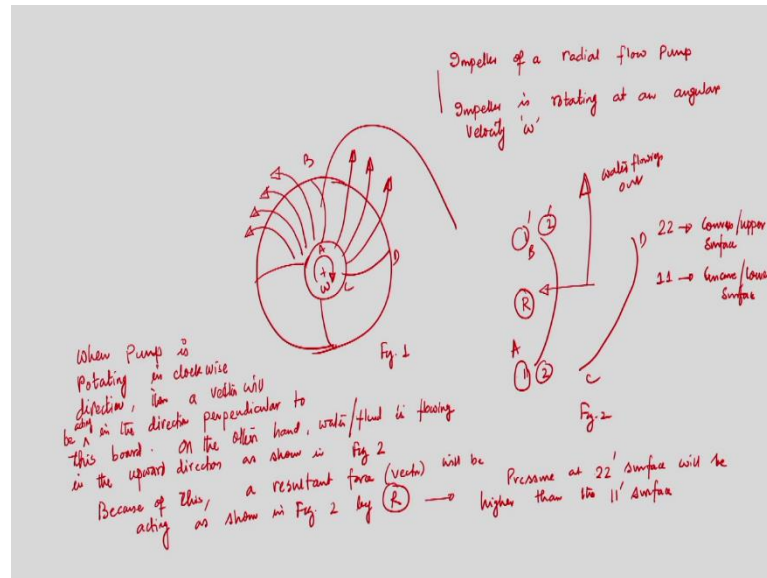 Impeller of a radial flow Pump
Impeller is rotating at an angular
velocity 'w'
B
A
w
C
D
Fig. 1
water flowing
out
1' 2'
B
R
A
1 2
D
C
Fig. 2
22 → Convex/upper
Surface
11 → Concave/Lower
Surface
When Pump is
Rotating in clockwise
direction, then a vector will
be acting in the direction perpendicular to
this board. On the other hand, water/fluid is flowing
in the upward direction as show in Fig 2
Because of this, a resultant force (vector) will be
acting as show in Fig. 2 by R → Pressure at 22' surface will be
higher than the 11' surface